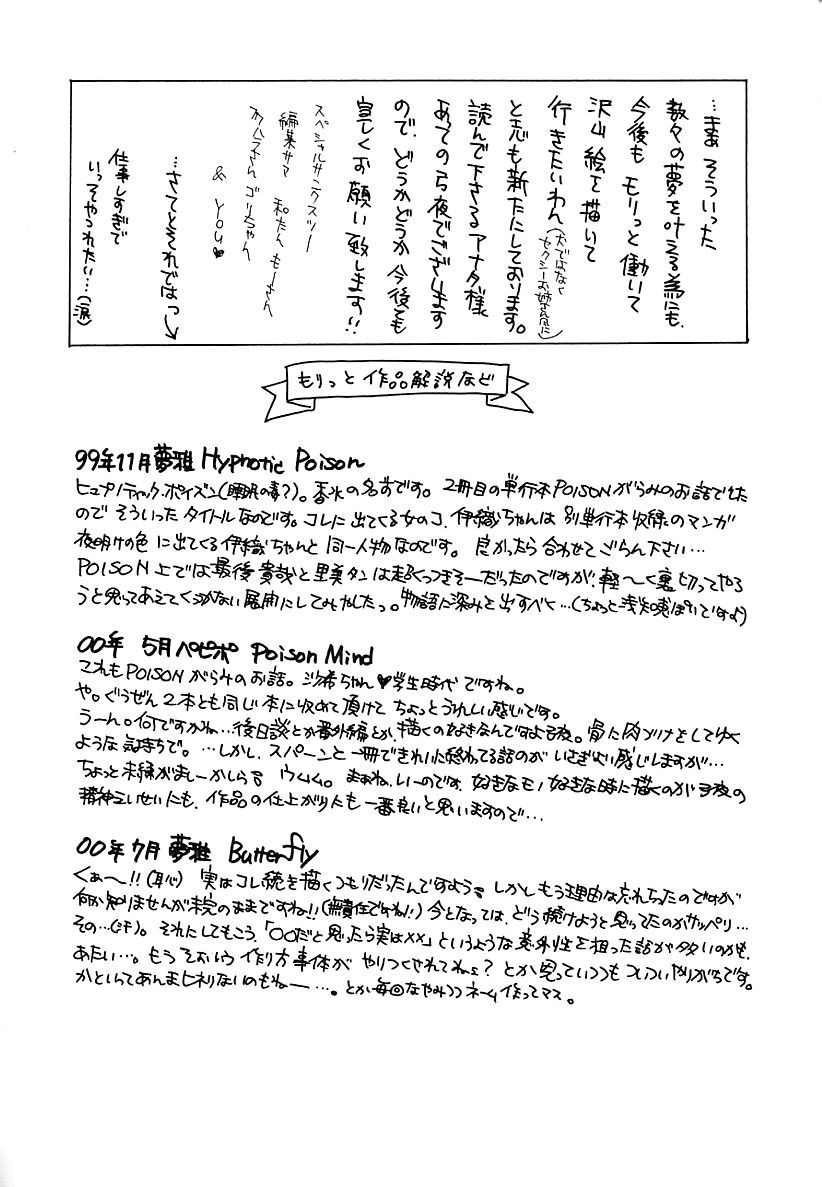 …まぁ そういった
数々の夢を叶える為にも、
今後も モリっと働いて
沢山 絵を描いて
行きたいわん(犬ではなく
セクシーお姉さん風に)
と志も新たにしております。
読んで下さるアナタ様
あっての弓夜でございます
ので、どうかどうか 今後とも
宜しくお願い致します!!
スペシャルサンクスツー
編集サマ 和たん もーさん
カムラさん ゴリちゃん
& YOU♥
…さてとそれではっ→
仕事しすぎで
いってやつれたい…(涙)
もりっと作品解説など
99年11月夢雅 Hypnotic Poison
ヒュプノティック・ポイズン(睡眠の毒?)。香水の名前です。2冊目の単行本POISONがらみのお話でした
ので そういった タイトルなのです。コレに出てくる女のコ、伊織ちゃんは 別単行本収録のマンガ
夜明けの色 に出てくる伊織ちゃんと 同一人物なのです。良かったら 合わせて ごらん下さい…
POISON上では最後 貴哉と里美タンは超くっつきそーだったのですが、軽〜く裏切ってやろ
うと思ってあえてくっつかない展開にしてみやしたっ。物語に深みを出すべく…(ちょっと浅知恵っぽいですよ)
00年 5月ペピポ Poison Mind
これもPOISONがらみのお話。沙希ちゃん♥学生時代ですね。
や。ぐうぜん2本とも同じ本に収めて頂けて ちょっとうれしい感じです。
うーん。何ですかね…後日談とか番外編とか、描くの好きなんですよ弓夜。骨に肉づけをしてゆく
ような気持ちで。…しかし、スパーンと一冊できれいに終わってる話のが いさぎよい感じしますが…
ちょっと未練がましーかしら? ウムム。まぁね、いーのです、好きなモノ好きな時に描くのが弓夜の
精神えいせいにも、作品の仕上がりにも一番良いと思いますので…
00年7月 夢雅 Butterfly
くぁ〜!!(恥) 実はコレ続を描くつもりだったんですよう? しかしもう理由は忘れちったのですが
何か知りませんが未完のままですね!!(無責任ですね!) 今となっては、どう続けようと思ってたのかサッパリ…
その…(汗)。それにしてもこう、「○○だと思ったら実は××」というような意外性を狙った話が多いのかも、
あたい…。もうそおいう作り方事体が やりつくされてねぇ?とか思っていつつも ついついやりがちです。
かといってあんまヒネリないのもねー…。とか毎回なやみつつネーム作ってマス。